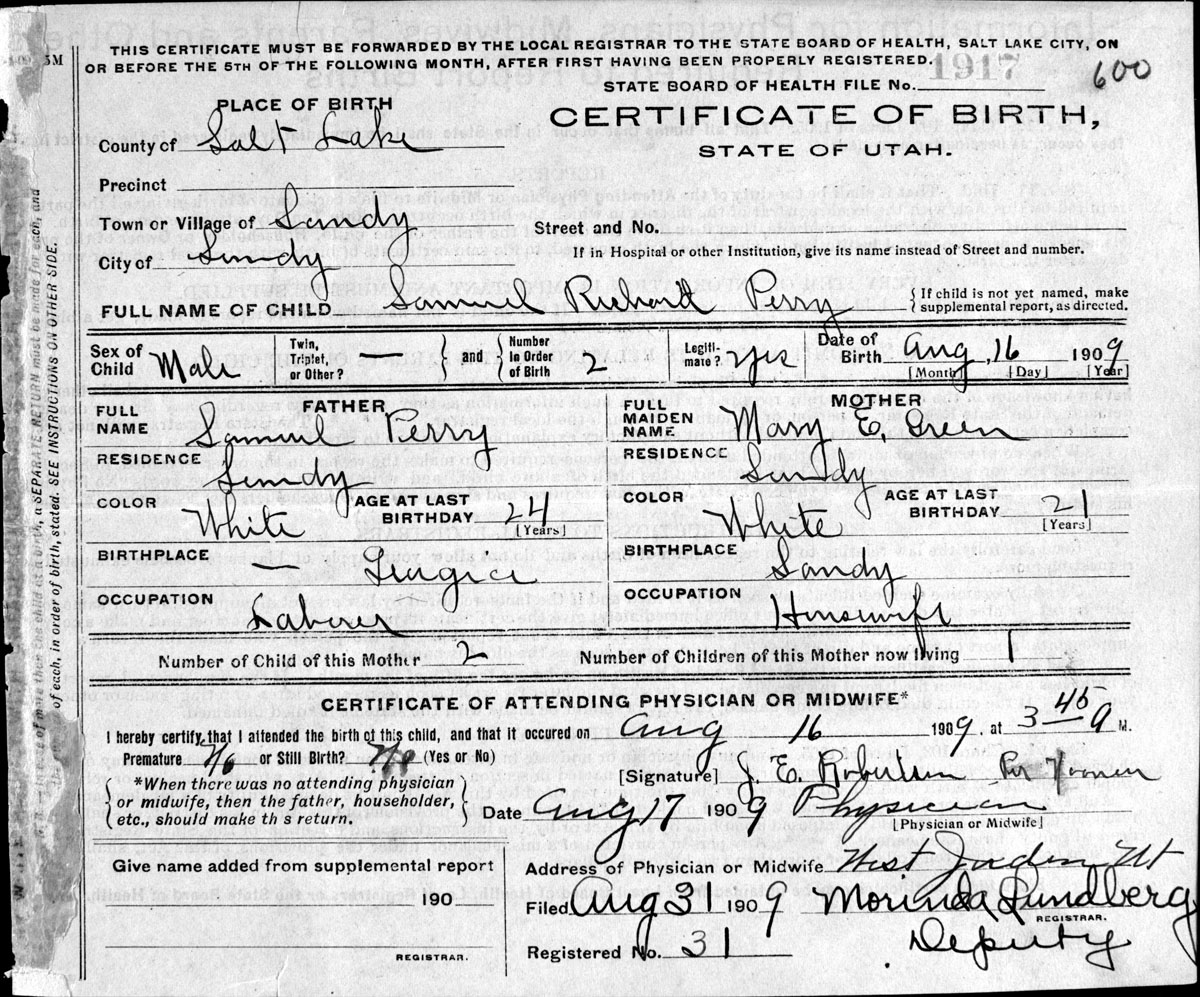 THIS CERTIFICATE MUST BE FORWARDED BY THE LOCAL REGISTRAR TO THE STATE BOARD OF HEALTH, SALT LAKE CITY, ON
OR BEFORE THE 5TH OF THE FOLLOWING MONTH, AFTER FIRST HAVING BEEN PROPERLY REGISTERED.
5M
1917
600
STATE BOARD OF HEALTH FILE No.
PLACE OF BIRTH
CERTIFICATE OF BIRTH,
STATE OF UTAH.
County of Salt Lake
Precinct
Town or Village of Sandy
Street and No.
City of Sandy
If in Hospital or other Institution, give its name instead of Street and number.
FULL NAME OF CHILD Samuel Richard Perry
If child is not yet named, make
supplemental report, as directed.
Sex of Child Male
Twin, Triplet, or Other? —
and Number in Order of Birth 2
Legitimate? yes
Date of Birth Aug, 16 1909
[Month] [Day] [Year]
FATHER
FULL NAME Samuel Perry
MOTHER
FULL MAIDEN NAME Mary E. Green
RESIDENCE Sandy
RESIDENCE Sandy
COLOR White
AGE AT LAST BIRTHDAY 24 [Years]
COLOR White
AGE AT LAST BIRTHDAY 21 [Years]
BIRTHPLACE —
BIRTHPLACE Sandy
OCCUPATION Laborer
OCCUPATION Housewife
Number of Child of this Mother 2
Number of Children of this Mother now living 1
CERTIFICATE OF ATTENDING PHYSICIAN OR MIDWIFE*
I hereby certify that I attended the birth of this child, and that it occured on Aug 16 1909, at 3 45 M.
Premature No or Still Birth? No (Yes or No)
[Signature] J. E. Robertson Per
*When there was no attending physician
or midwife, then the father, householder,
etc., should make th s return.
Date Aug 17 1909 Physician
[Physician or Midwife]
Give name added from supplemental report
190
REGISTRAR.
Address of Physician or Midwife West Jordan Ut
Filed Aug 31 1909 Morinda Lundberg
REGISTRAR.
Registered No. 31 Deputy
of each, in order of birth, stated. SEE INSTRUCTIONS ON OTHER SIDE.
a SEPARATE RETURN must be made for each, and